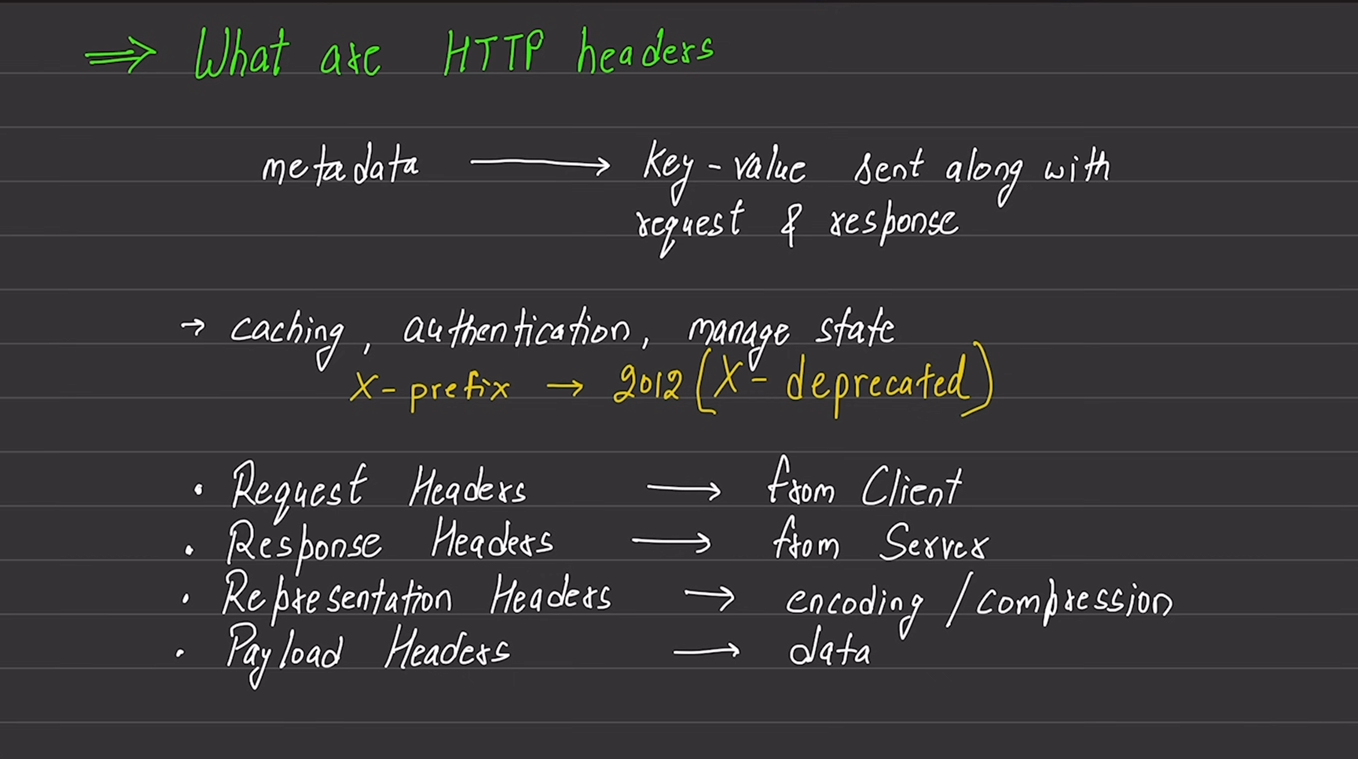 ⇒ What are HTTP headers
metadata → Key-value sent along with
request & response
→ caching, authentication, manage state
X-prefix → 2012 (X- deprecated)
• Request Headers → from Client
• Response Headers → from Server
• Representation Headers → encoding / compression
• Payload Headers → data